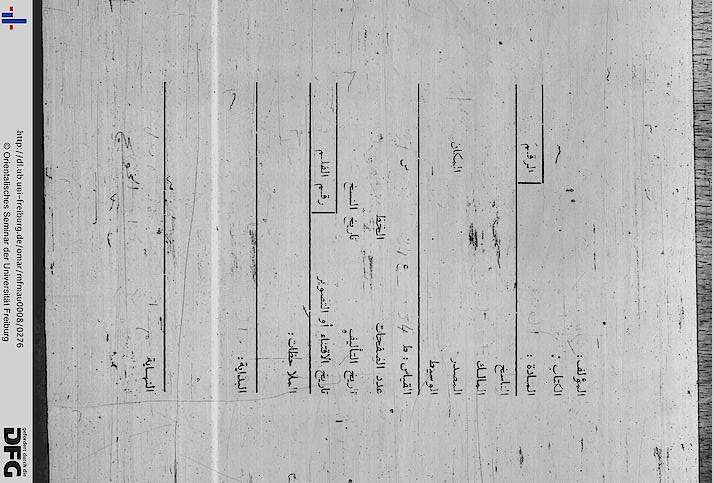 المؤلف:
الكتاب:
المادة: الرقم
الناسخ
المالك
المصدر المكان
الوسيط
القياس: ط س
عدد الصفحات الخط
تاريخ التأليف تاريخ النسخ
تاريخ الاقتناء أو التصوير رقم الفلم
الملاحظات:
البداية:
النهاية
http://dl.ub.uni-freiburg.de/omar/mfmau0008/0276
© Orientalisches Seminar der Universität Freiburg
gefördert durch die
DFG